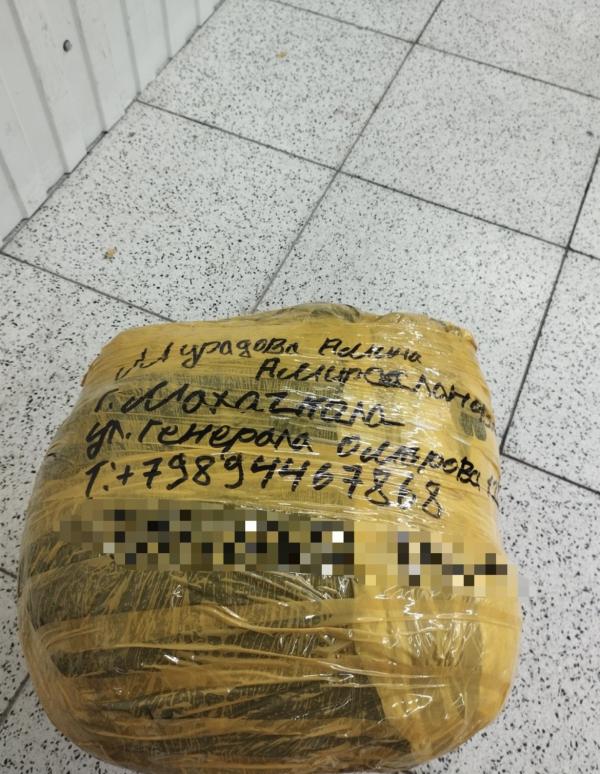 Мурадова Амина
Амирослановна
г. Махачкала
ул. Генерала омарова
Т:+79894467868